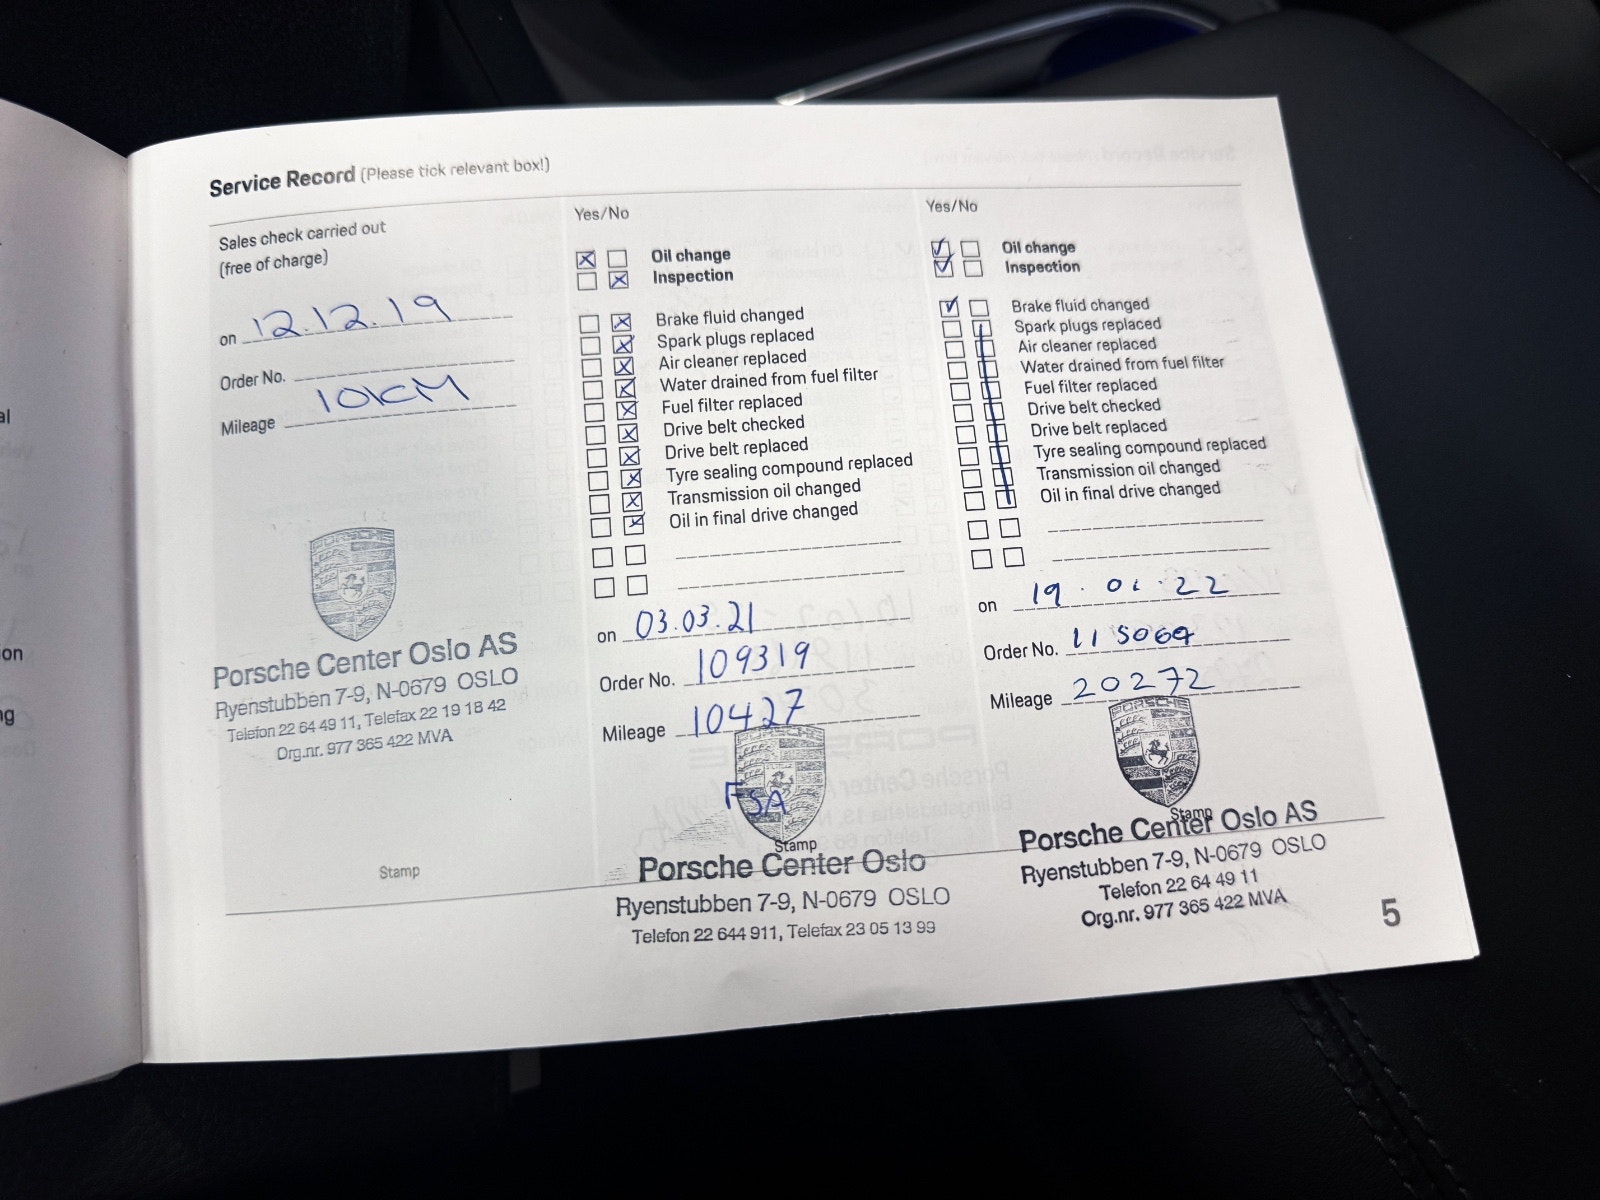 Service Record (Please tick relevant box!)
Sales check carried out
(free of charge)
on 12.12.19
Order No.
Mileage 10KM
PORSCHE
Porsche Center Oslo AS
Ryenstubben 7-9, N-0679 OSLO
Telefon 22 64 49 11, Telefax 22 19 18 42
Org.nr. 977 365 422 MVA
Stamp
Yes/No
Oil change
Inspection
Brake fluid changed
Spark plugs replaced
Air cleaner replaced
Water drained from fuel filter
Fuel filter replaced
Drive belt checked
Drive belt replaced
Tyre sealing compound replaced
Transmission oil changed
Oil in final drive changed
on 03.03.21
Order No. 109319
Mileage 10427
PORSCHE
FSA
Stamp
Porsche Center Oslo
Ryenstubben 7-9, N-0679 OSLO
Telefon 22 644 911, Telefax 23 05 13 99
Yes/No
Oil change
Inspection
Brake fluid changed
Spark plugs replaced
Air cleaner replaced
Water drained from fuel filter
Fuel filter replaced
Drive belt checked
Drive belt replaced
Tyre sealing compound replaced
Transmission oil changed
Oil in final drive changed
on 19.01.22
Order No. 115069
Mileage 20272
PORSCHE
Stamp
Porsche Center Oslo AS
Ryenstubben 7-9, N-0679 OSLO
Telefon 22 64 49 11
Org.nr. 977 365 422 MVA
5
al
on
ng